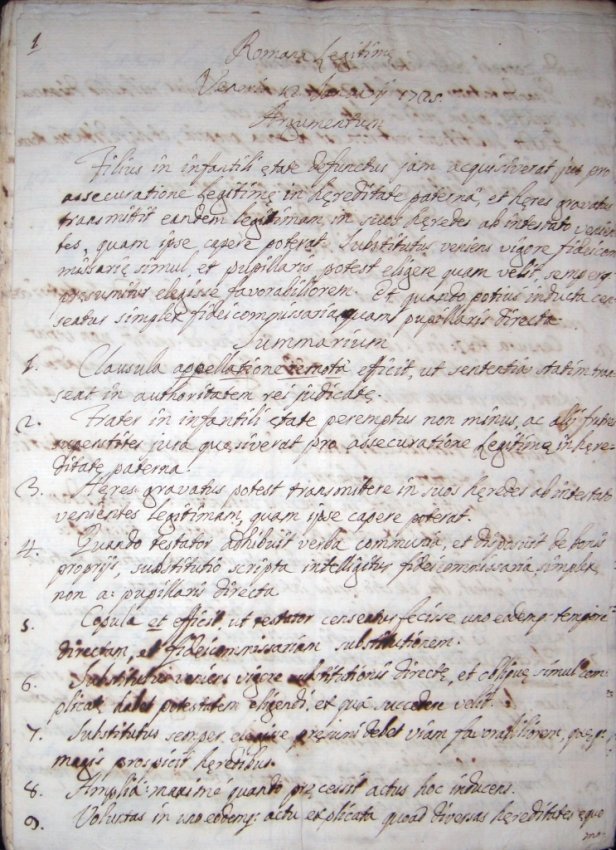 1
Romana Legitimę
Veneris 12 Januarij 1725.
Argumentum
Filius in infantili ętate defunctus jam acquisiverat jus pro
assecuratione legitimę in hęreditate paterna, et hęres gravatus
transmittit eandem legitimam in suos hęredes ab intestato venien
tes, quam ipse capere poterat. Substitutus veniens vigore fideicom
missarię simul, et pupillaris potest eligere quam velit, semperq;
pręsumitur elegisse favorabiliorem. Et quando potius inducta cen
seatur simplex fideicommissaria, quam pupillaris directa
Summarium
1. Clausula appellatione remota efficit, ut sententia statim tran
seat in authoritatem rei judicatę.
2. Frater in infantili ętate peremptus non minus, ac alij fratres
superstites jura quęsiverat pro assecuratione legitimę in hęre-
ditate paterna.
3. Hęres gravatus potest transmittere in suos hęredes ab intestato
venientes legitimam, quam ipse capere poterat.
4. Quando testator adhibuit verba communia, et disposuit de bonis
proprijs, substitutio scripta intelligitur fideicommissaria simplex
non a: pupillaris directa
5. Copula et efficit, ut testator censeatur fecisse uno eodemq; tempore
directam, et fideicommissariam substitutionem.
6. Substitutus veniens vigore substitutionis directę, et obliquę simul com
plicatę habet potestatem eligendi, ex qua succedere velit.
7. Substitutus semper elegisse pręsumi debet viam favorabiliorem, quę
magis prospicit hęredibus.
8. Amplia: maximè quando pręcessit actus hoc inducens.
9. Voluntas in uno eodemq; actu explicata quoad diversas hęreditates ęquo